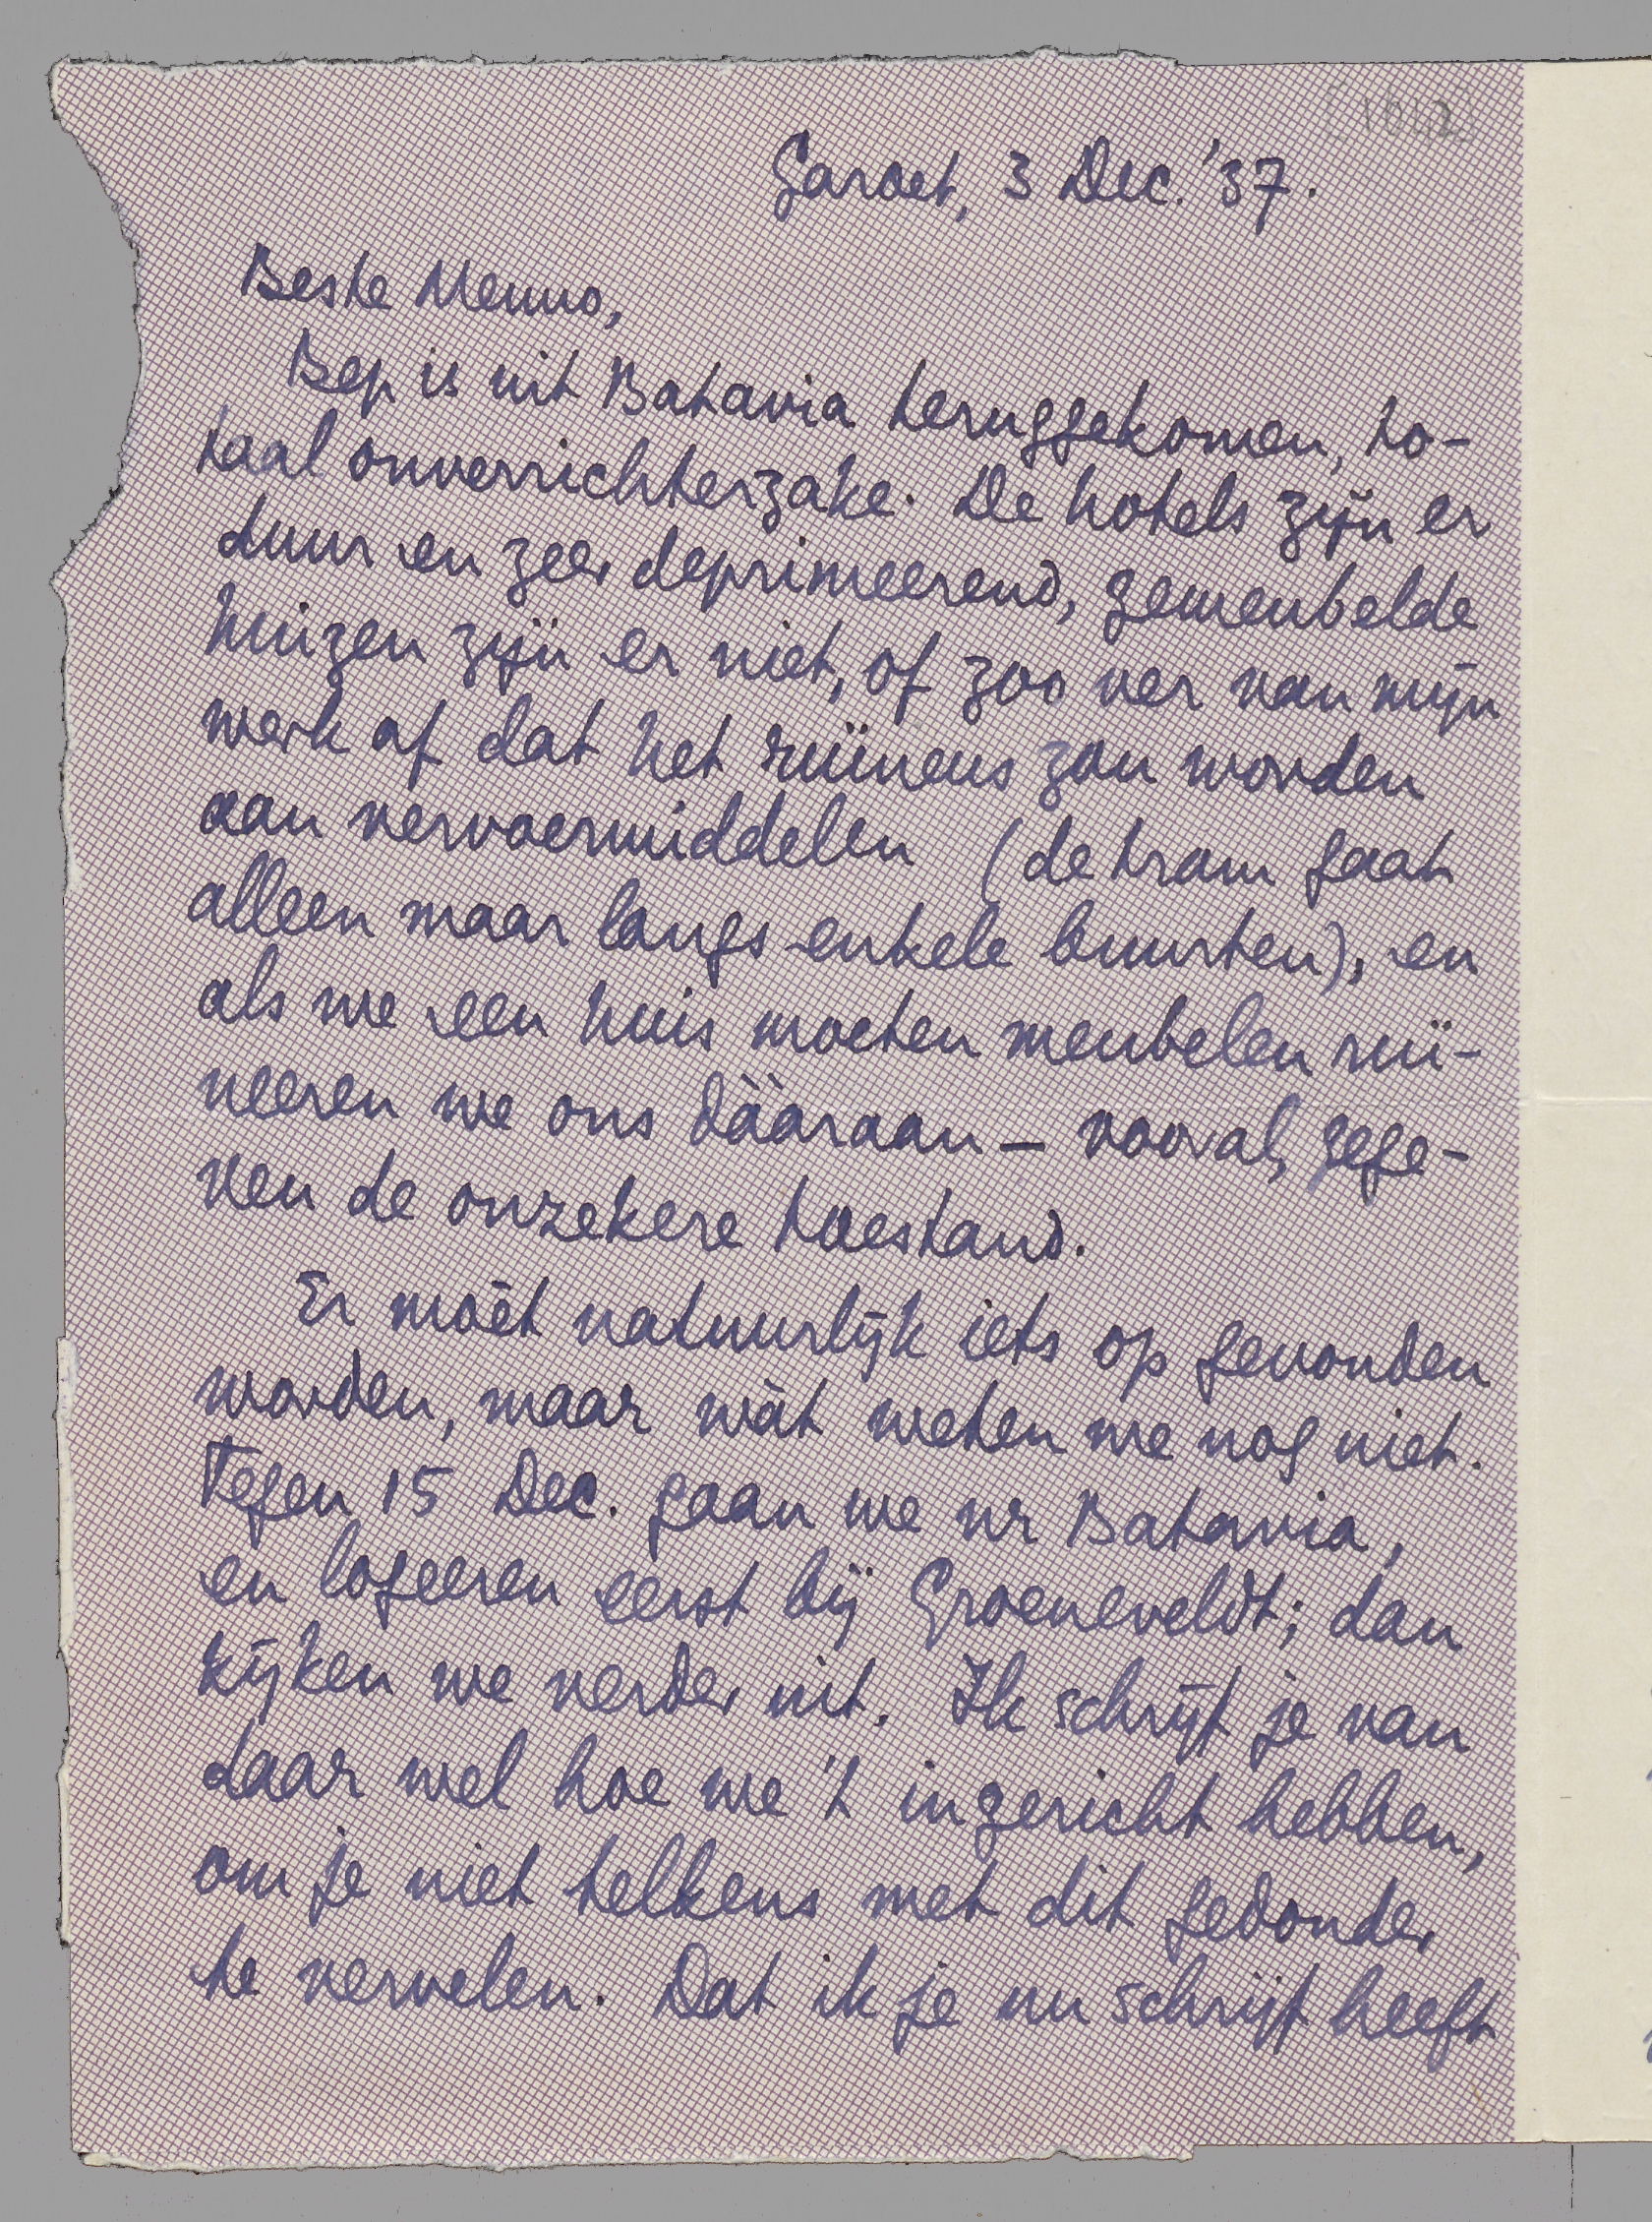 [1612]
Garoet, 3 Dec. '37.
Beste Menno,
Bep is uit Batavia teruggekomen, to-
taal onverrichterzake. De hotels zijn er
duur en zeer deprimeerend, gemeubelde
huizen zijn er niet, of zoo ver van mijn
werk af dat het ruïneus zou worden
aan vervoermiddelen (de tram gaat
alleen maar langs enkele buurten), en
als we een huis moeten meubelen ruï-
neeren we ons dààraan – vooral, gege-
ven de onzekere toestand.
Er moèt natuurlijk iets op gevonden
worden, maar wàt weten we nog niet.
Tegen 15 Dec. gaan we nr Batavia,
en logeeren eerst bij Groeneveldt; dan
kijken we verder uit. Ik schrijf je van
daar wel hoe we 't ingericht hebben,
om je niet telkens met dit gedonder
te vervelen. Dat ik je nu schrijf heeft